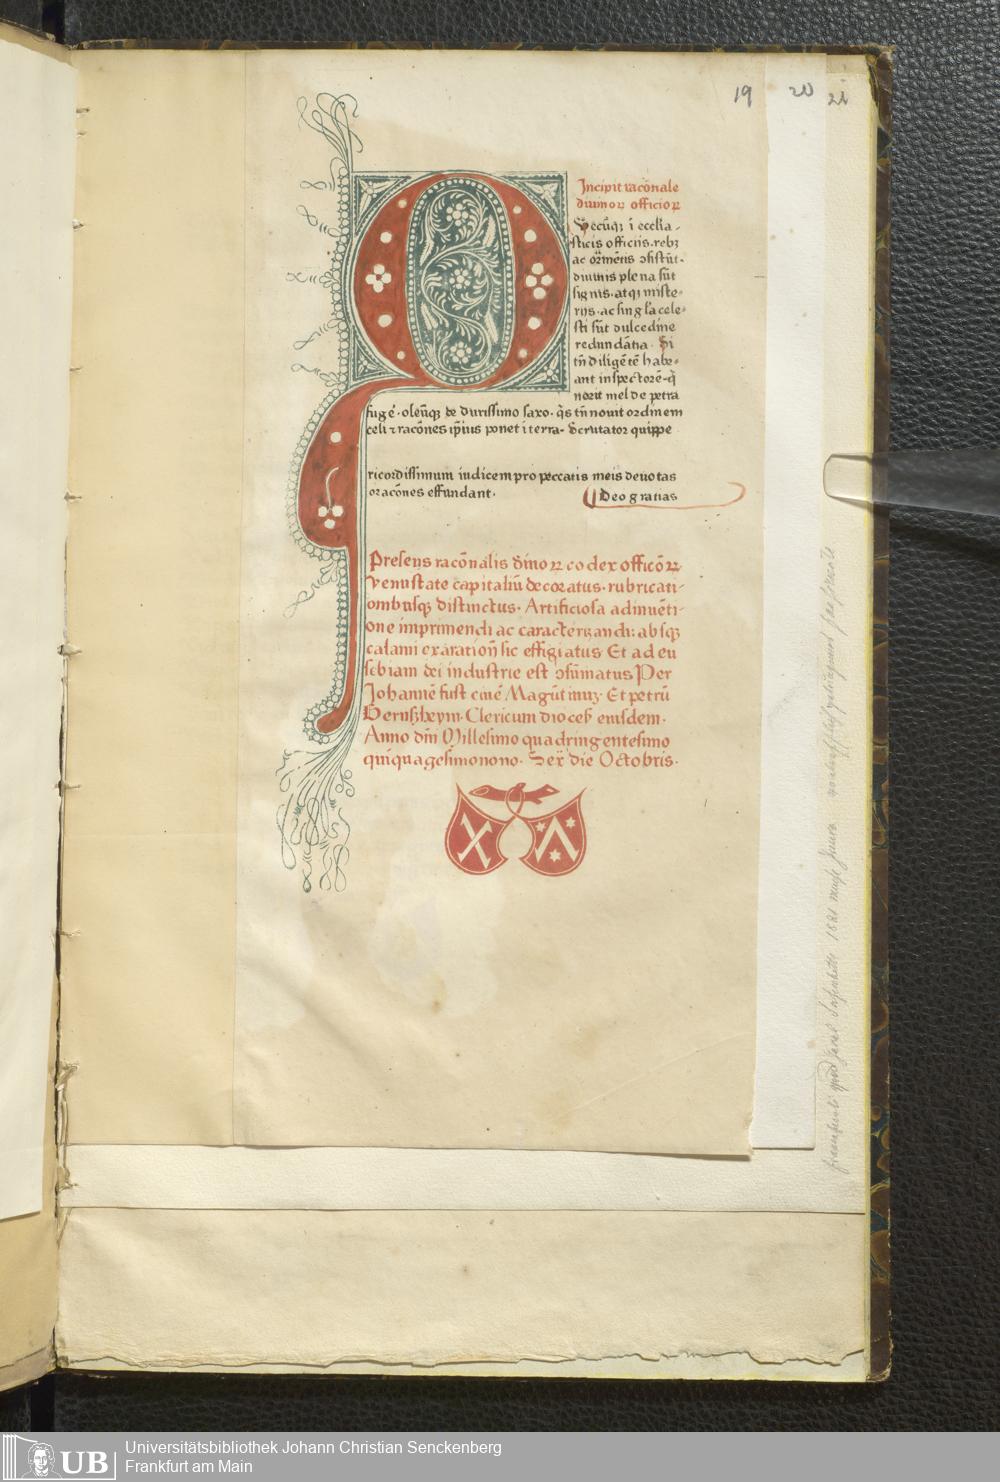 19 20 21
Incipit racōnale
diuinoꝝ officioꝝ
Q
Vecūqꝫ ī eccl'ia-
sticis officiis. rebꝫ
ac ornāmētis ↄsistūt.
diuinis plena sūt
signis. atqꝫ miste-
riis. ac singl'a cele-
sti sūt dulcedine
redundātia. Si
tn̄ diligētē habe-
ant inspectorē. q̄
norit mel de petra
fugē. oleūqꝫ de durissimo saxo. q̇s tn̄ nouit ordinem
celi ⁊ racōnes ip̄ius ponet ī terra. Scrutator quippe
ricordissimum iudicem pro peccatis meis deuotas
oracōnes effundant. Deo gratias
Presens racōnalis diuinoꝝ codex officōꝝ
venustate capitaliū decoratus. rubricati-
onibusqꝫ distinctus. Artificiosa adinuēti-
one imprimendi ac caracterizandi: absqꝫ
calami exaratioñ sic effigiatus Et ad eu
sebiam dei industrie est ↄsūmatus Per
Johannē fust ciuē Magūtinuꝫ. Et petrū
Gernsꝫheym. Clericum dioceß eiusdem.
Anno dn̄i Millesimo quadringentesimo
quīquagesimonono. Sexto die Octobris.
Universitätsbibliothek Johann Christian Senckenberg
Frankfurt am Main
UB